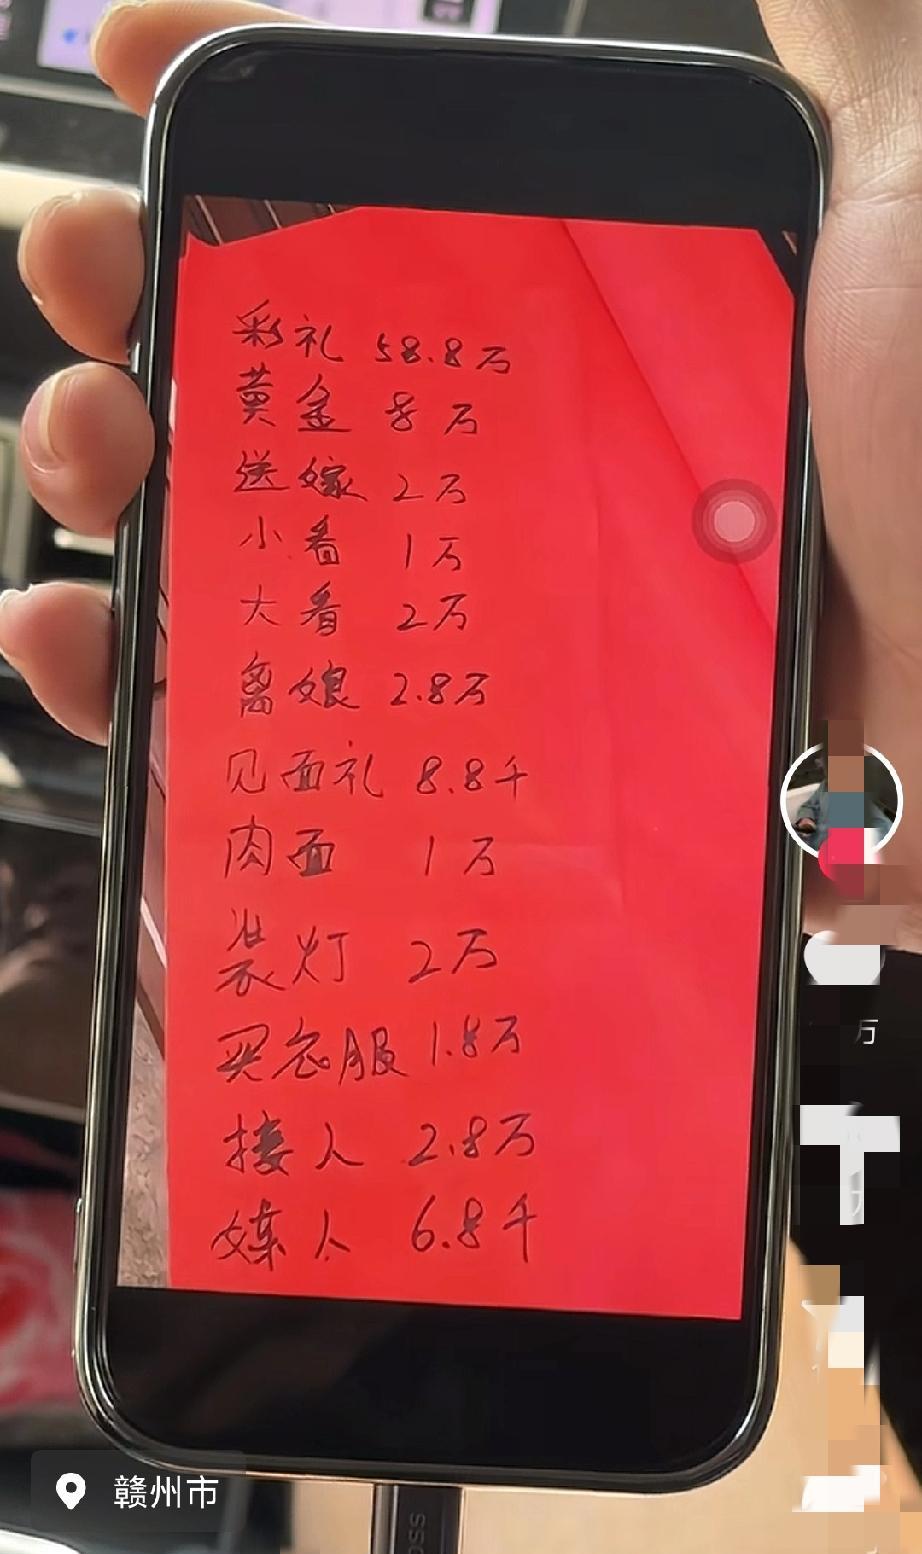 彩礼 58.8万
黄金 8万
送嫁 2万
小看 1万
大看 2万
离娘 2.8万
见面礼 8.8千
肉面 1万
装灯 2万
买衣服 1.8万
接人 2.8万
媒人 6.8千
万
赣州市